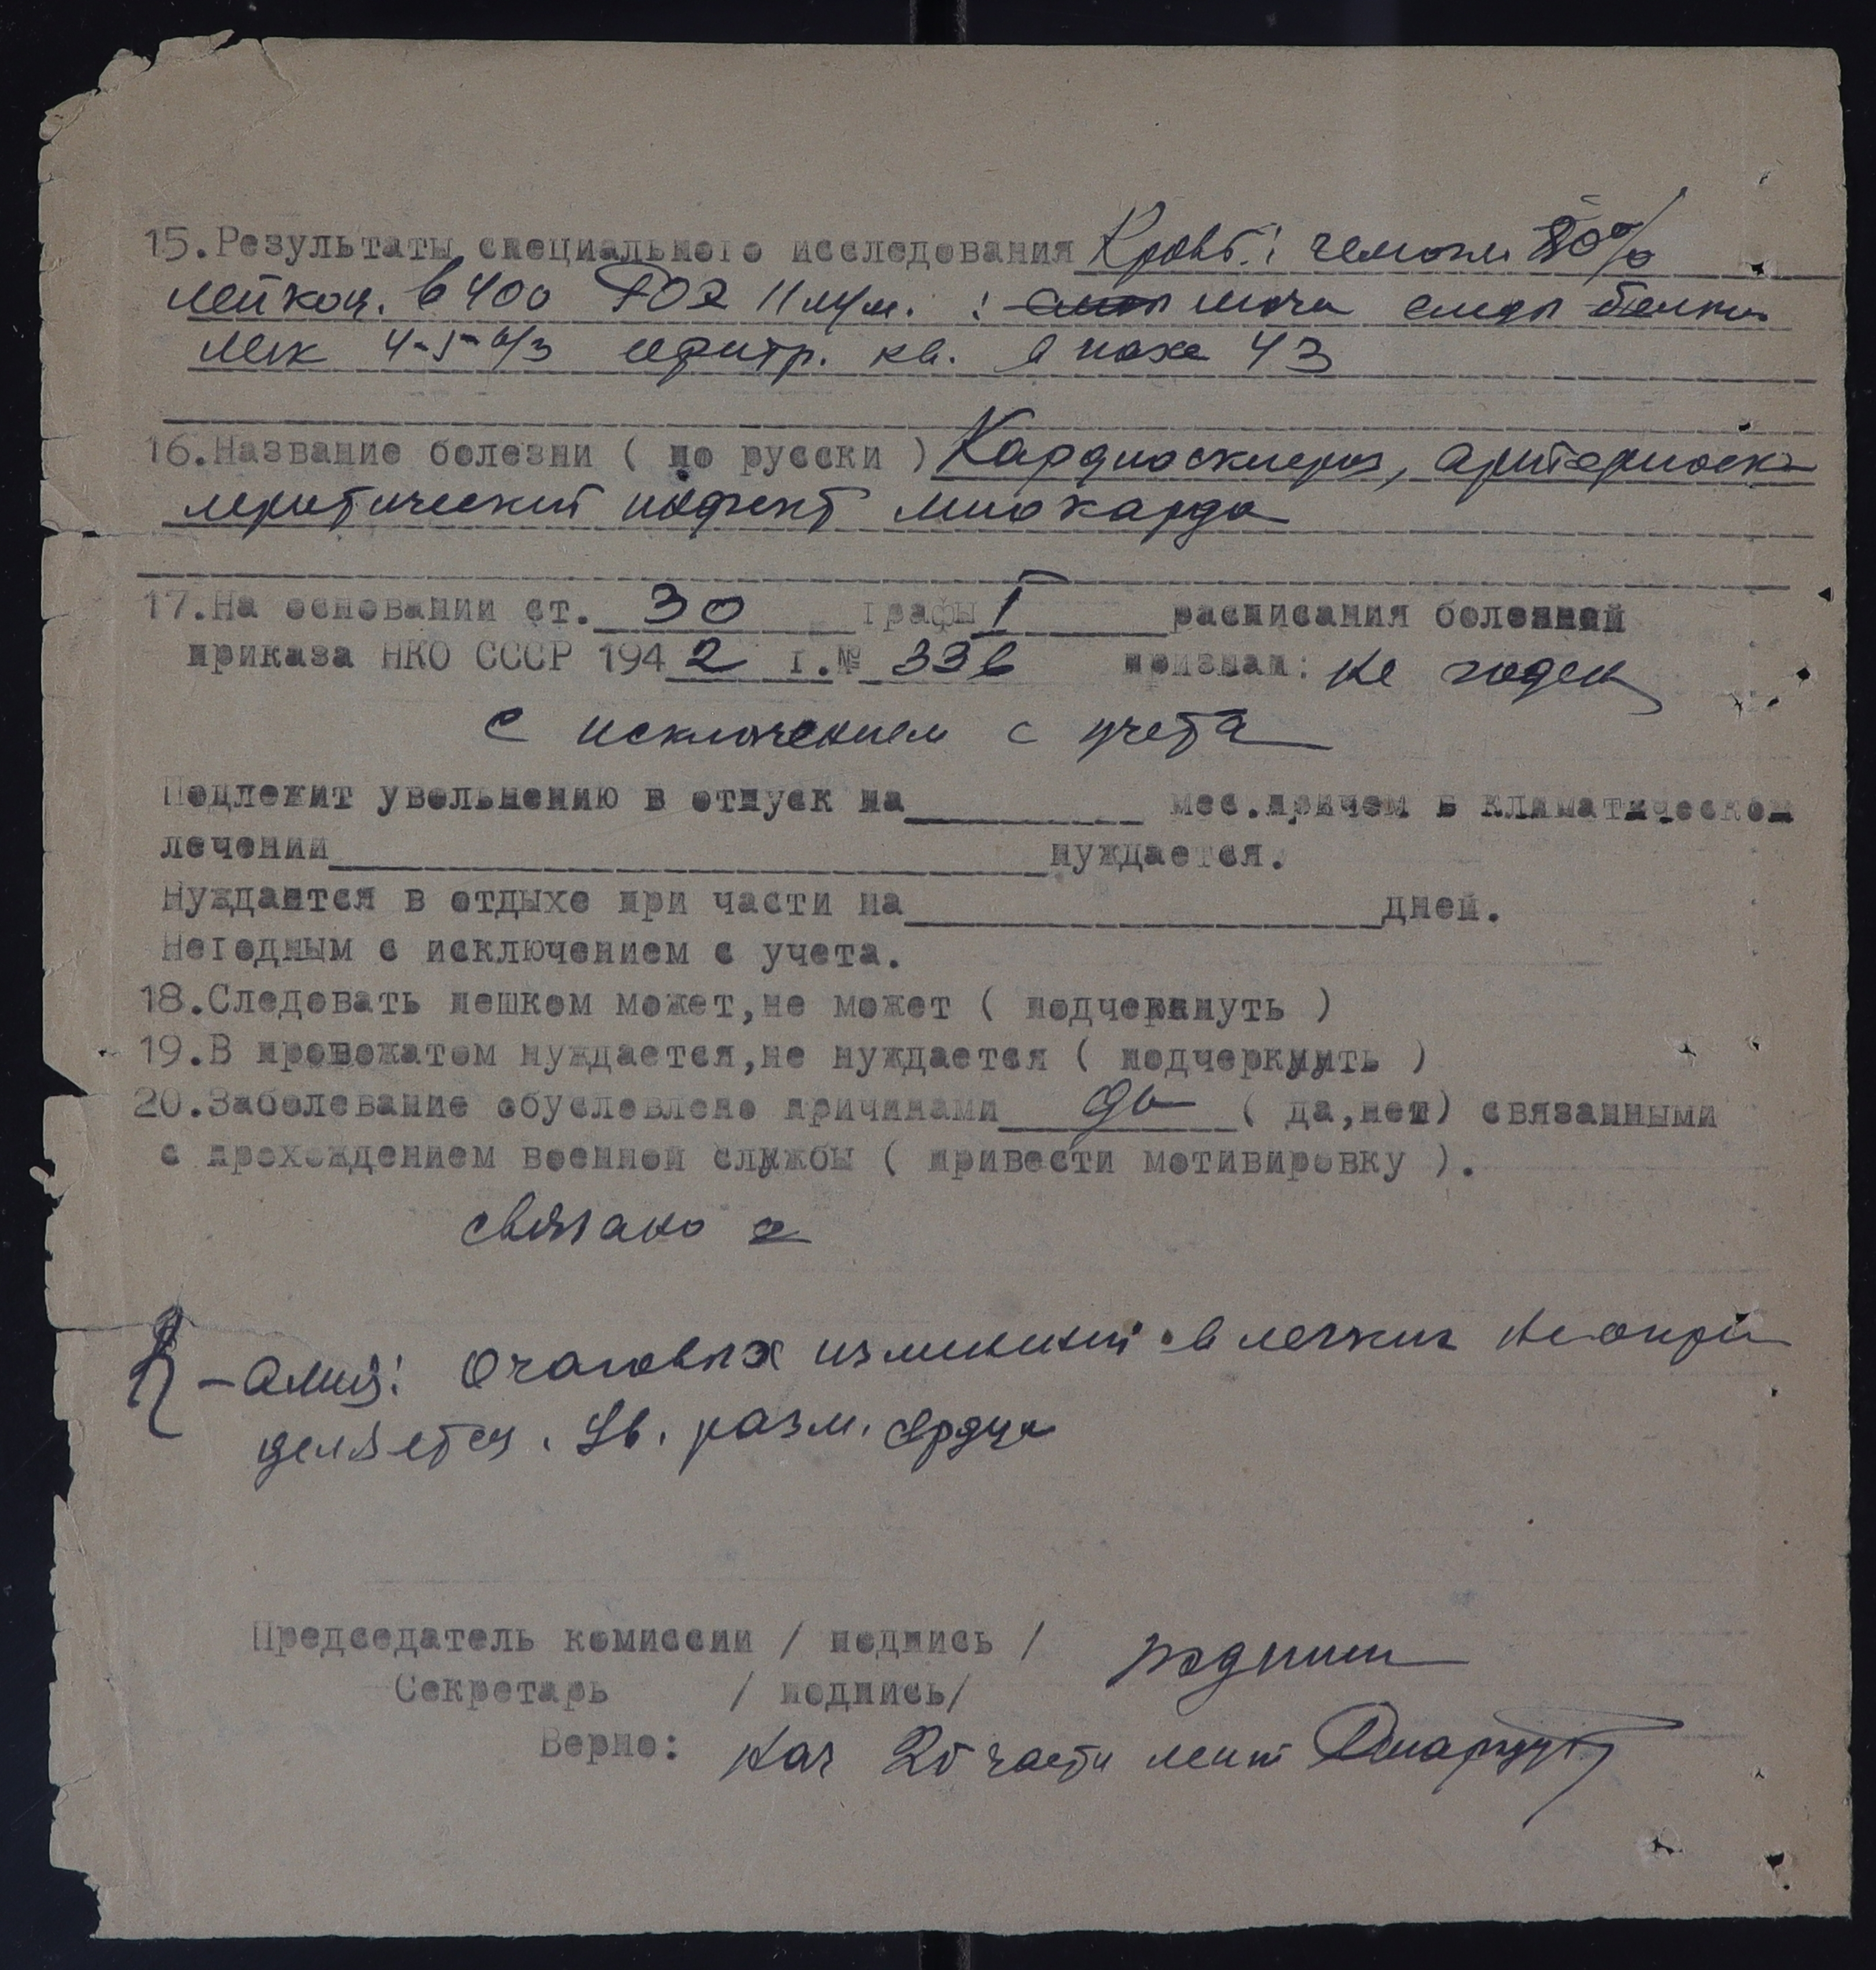 15.Результаты специального исследования Кровь: гемогл. 80%
лейкоц. 6400 РОЭ 11 м/м. : моча следы белка
лек 4-5- в/з эритр. кв. в поле ч з
16.Название болезни ( по русски ) Кардиосклероз, артериоск-
леротический миокарда
17.На основании ст. 30 графы I расписания болезней
приказа НКО СССР 1942 г.№ 336 признан: не годен
с исключением с учета
Подлежит увольнению в отпуск на мес.причем в климатическом
лечении нуждается.
Нуждается в отдыхе при части на дней.
Негодным с исключением с учета.
18.Следовать пешком может,не может ( подчеркнуть )
19.В провожатом нуждается,не нуждается ( подчеркнуть )
20.Заболевание обусловлено причинами да ( да,нет) связанными
с прохождением военной службы ( привести мотивировку ).
связано
R - Очаговых изменений в легких не опре
деляется. Ув. разм. сердца
Председатель комиссии / подпись / подписи
Секретарь / подпись/
Верно: Нач 2й части лент